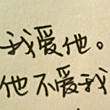 我爱他。
他不爱我